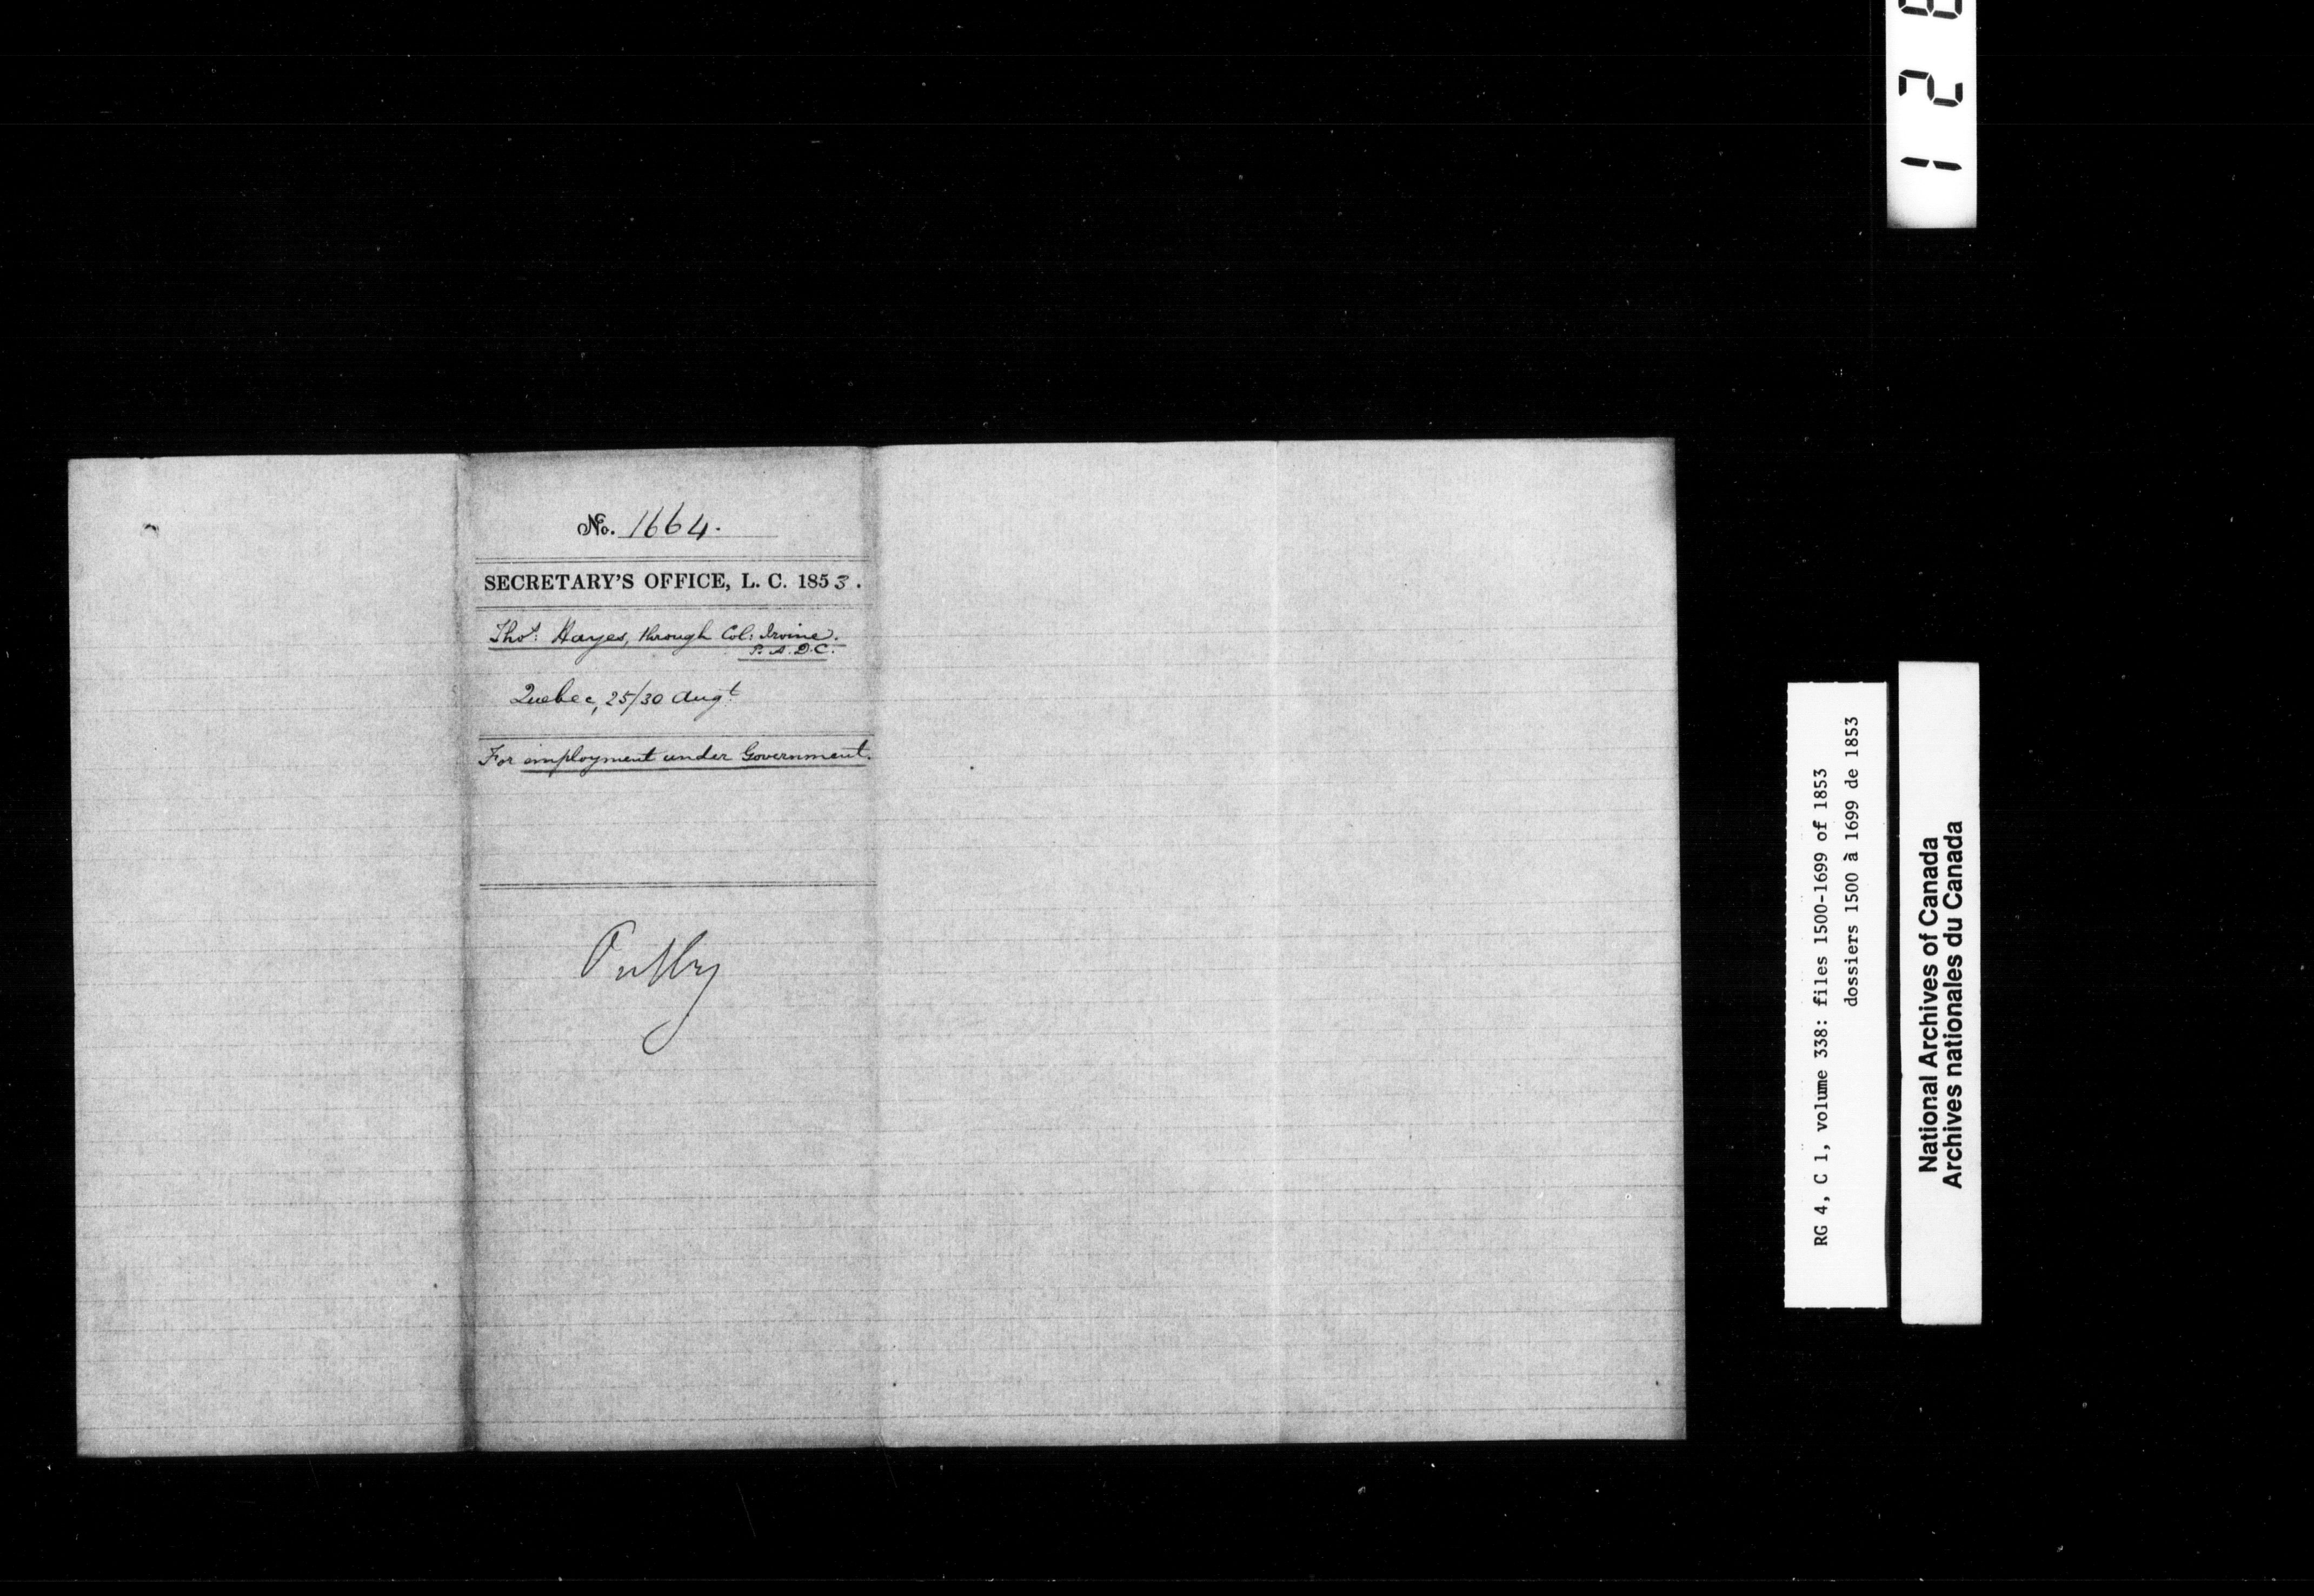 No. 1664.
SECRETARY'S OFFICE, L. C. 1853.
Thos: Hayes, through Col: Irvine.
P. A. D. C.
Quebec, 25/30 Augt
For employment under Government.
RG 4, C 1, volume 338: files 1500-1699 of 1853
dossiers 1500 à 1699 de 1853
National Archives of Canada
Archives nationales du Canada
1 2 8